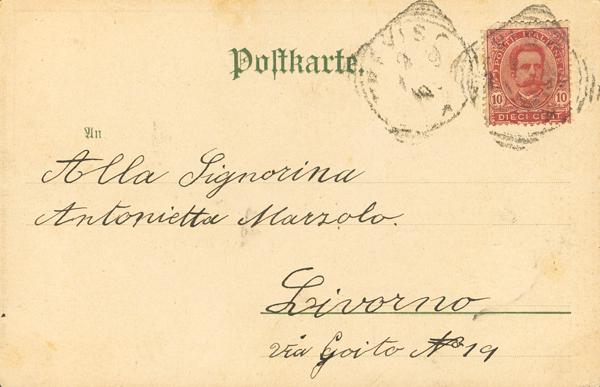 Postkarte.
POSTE ITALIANE
10 10
DIECI CENT
An
Alla Signorina
Antonietta Marzolo.
Livorno
Via Goito No 19